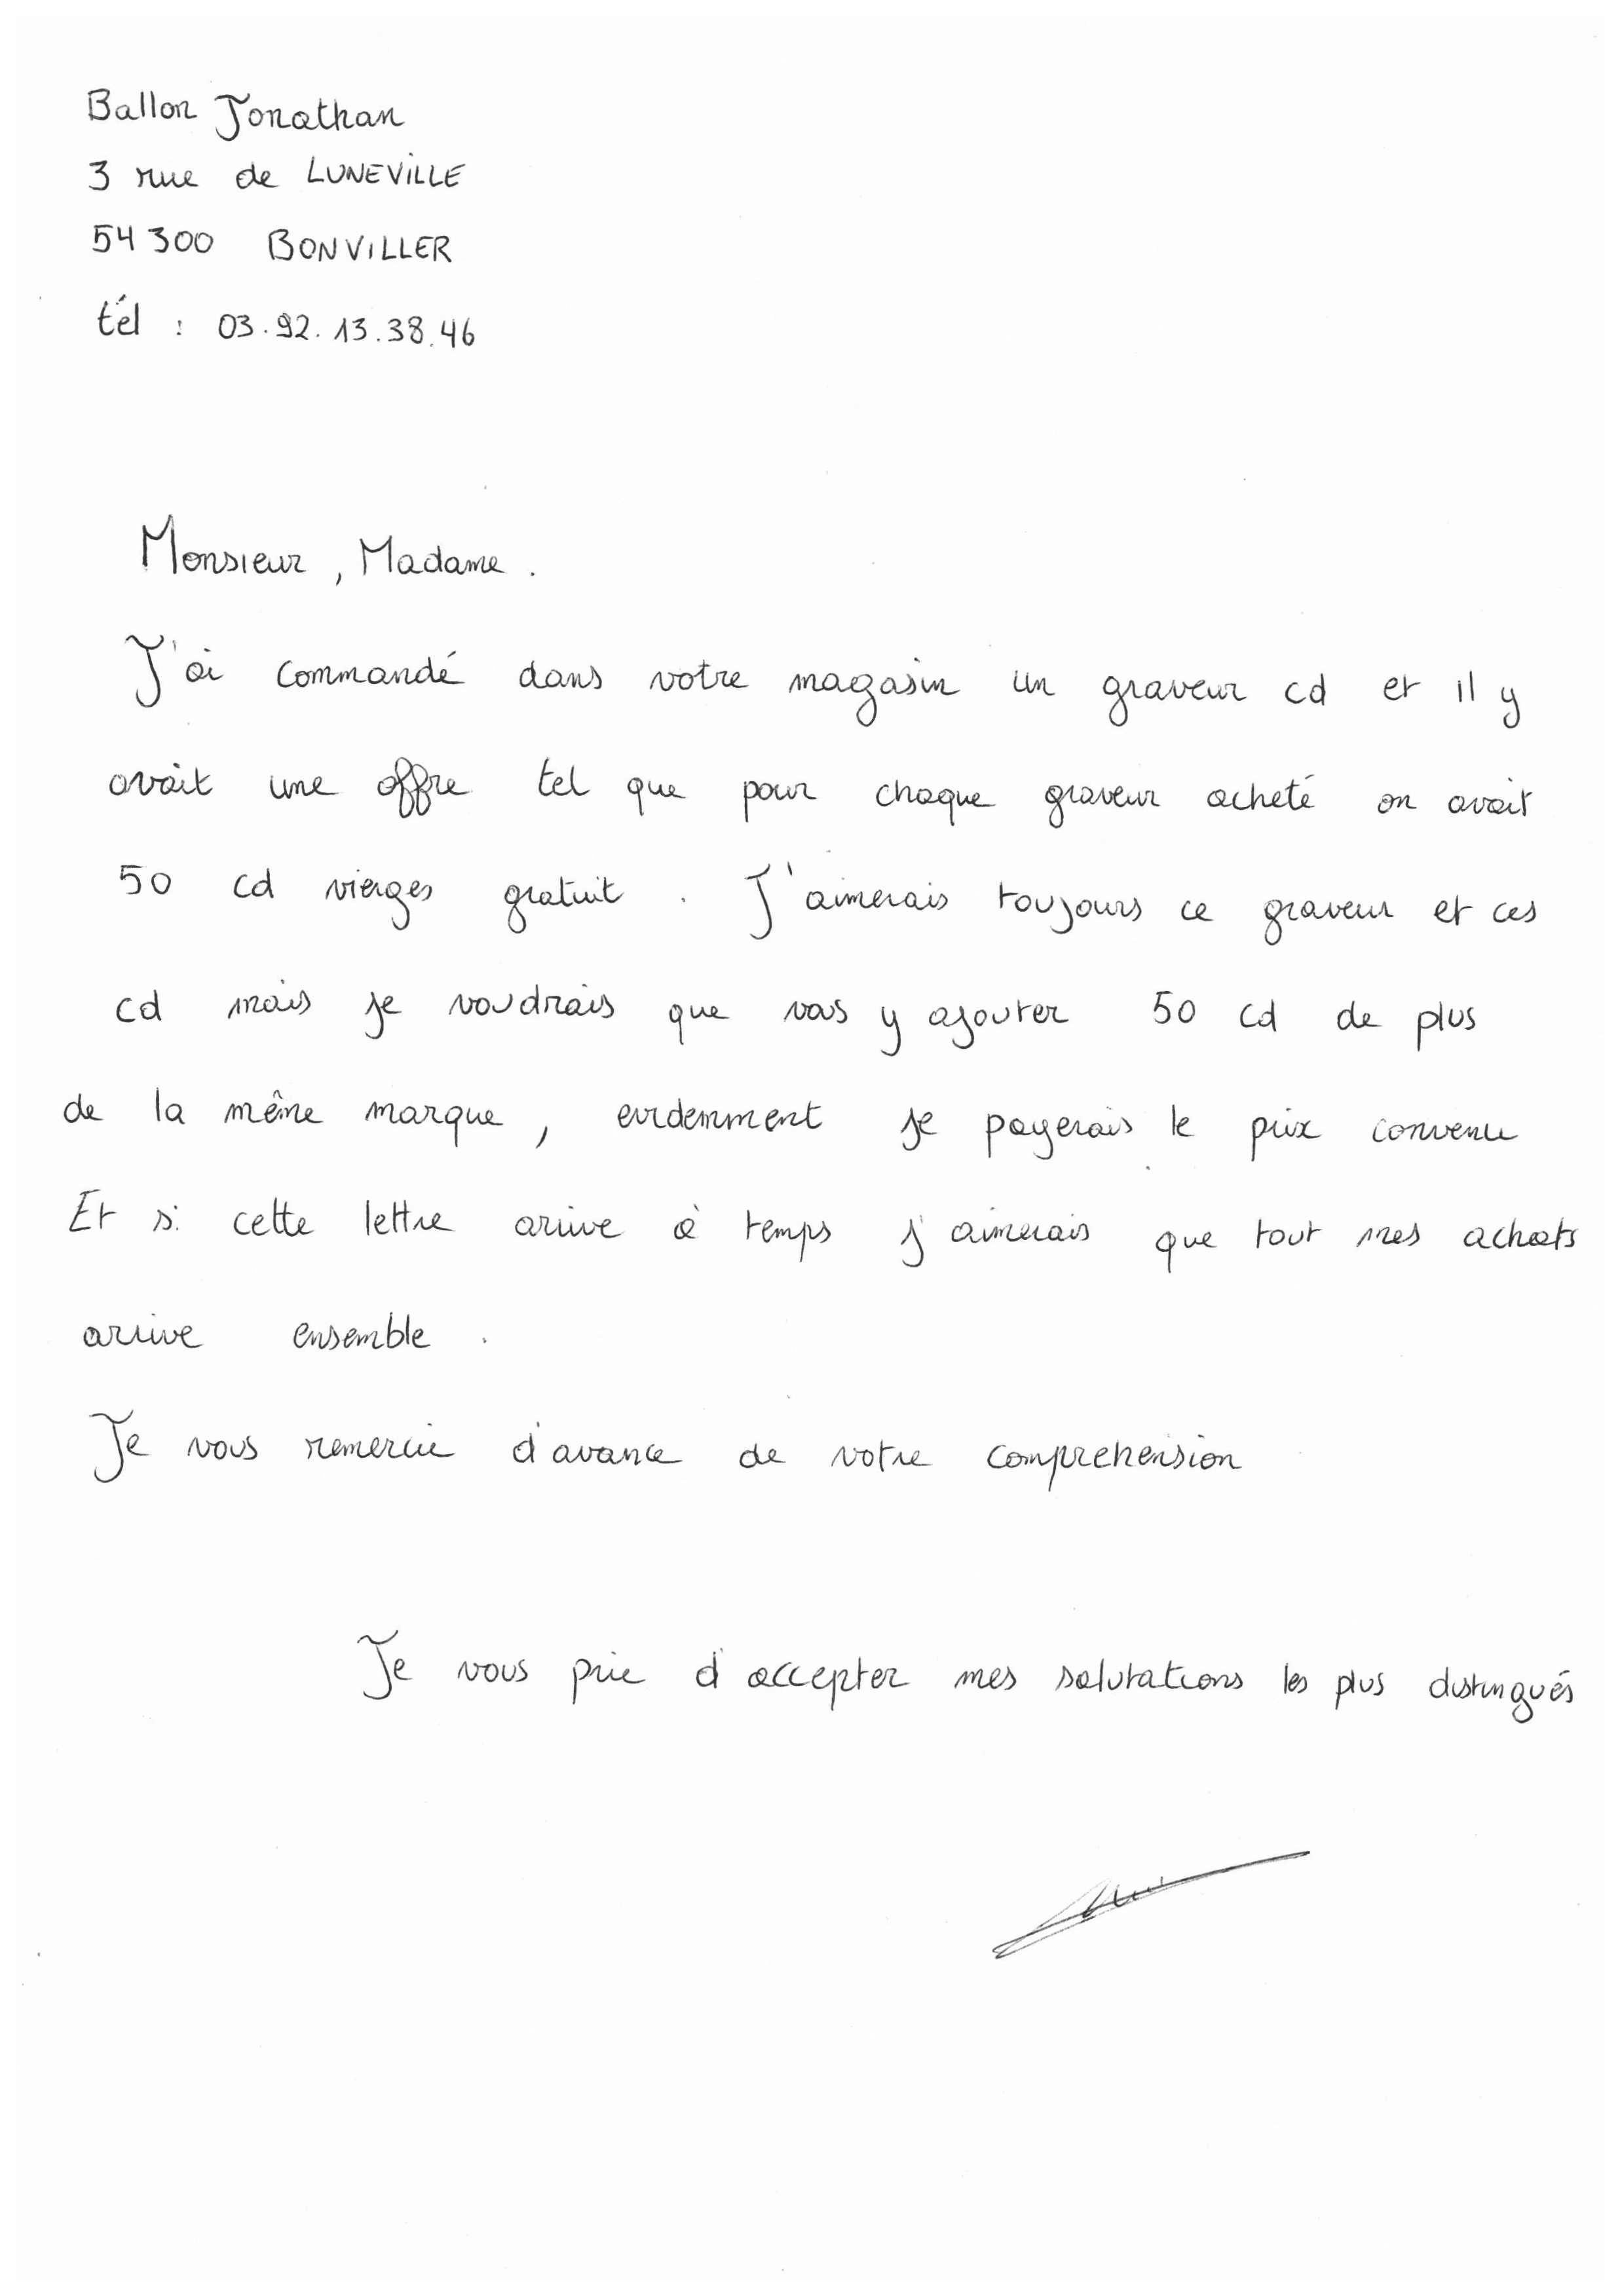 Ballon Jonathan
3 rue de LUNEVILLE
54 300 BONVILLER
tél : 03.92.13.38.46
Monsieur, Madame.
J'ai commandé dans votre magasin un graveur cd et il y
avait une offre tel que pour chaque graveur acheté on avait
50 cd vierges gratuit. J'aimerais toujours ce graveur et ces
cd mais je voudrais que vous y ajouter 50 cd de plus
de la même marque, evidemment je payerais le prix convenu
Et si cette lettre arrive à temps j'aimerais que tout mes achats
arrive ensemble.
Je vous remercie d'avance de votre comprehension
Je vous prie d'accepter mes salutations les plus distingués